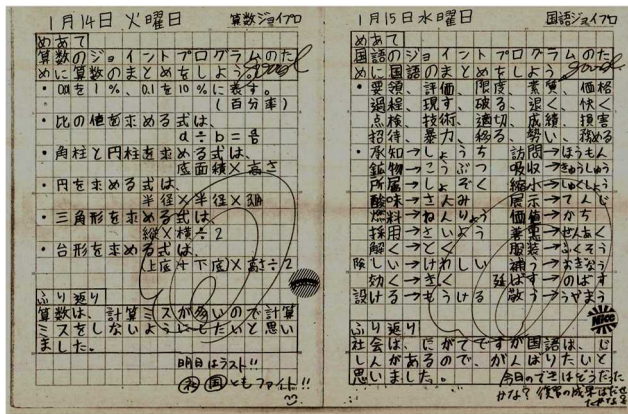 1月14日 火曜日 算数ジョイプロ
めあて
算数のジョイントプログラムのた
めに算数のまとめをしよう。
・0.01を1%、0.1を10%に表す。
(百分率)
・比の値を求める式は、
a÷b=
・角柱と円柱を求める式は、
底面積×高さ
・円を求める式は、
半径×半径×3.14
・三角形を求める式は、
縦×横÷2
・台形を求める式は、
(上底+下底)×高さ÷2
ふり返り
算数は、計算ミスが多いので計算
ミスをしないようにしたいと思い
ました。
明日はラスト!!
国ともファイト!!
1月15日 水曜日 国語ジョイプロ
めあて
国語のジョイントプログラムのた
めに国語のまとめをしよう
・要領、評価、限度、素質、価格
過程、現す、破る、退く、快く
点検、技術、適切、成績、損害
招待、暴力、移る、勢い、務める
・承知→しょうち 訪問→ほうもん
鉱物→こうぶつ 吸収→きゅうしゅう
所属→しょぞく 縮小→しゅくしょう
酸味→さんみ 展示→てんじ
燃料→ねんりょう 価値→かち
採用→さいよう 善悪→ぜんあく
解く→とく 服装→ふくそう
険しい→けわしい 補う→おぎなう
効く→きく 延ばす→のばす
設ける→もうける 敬う→うやまう
Nice
ふり返り
社会は、にがてですが国語は、じ
しんがあるので、がんばりたいと
思いました。
今日のできはどうだった
かな?復習の成果は